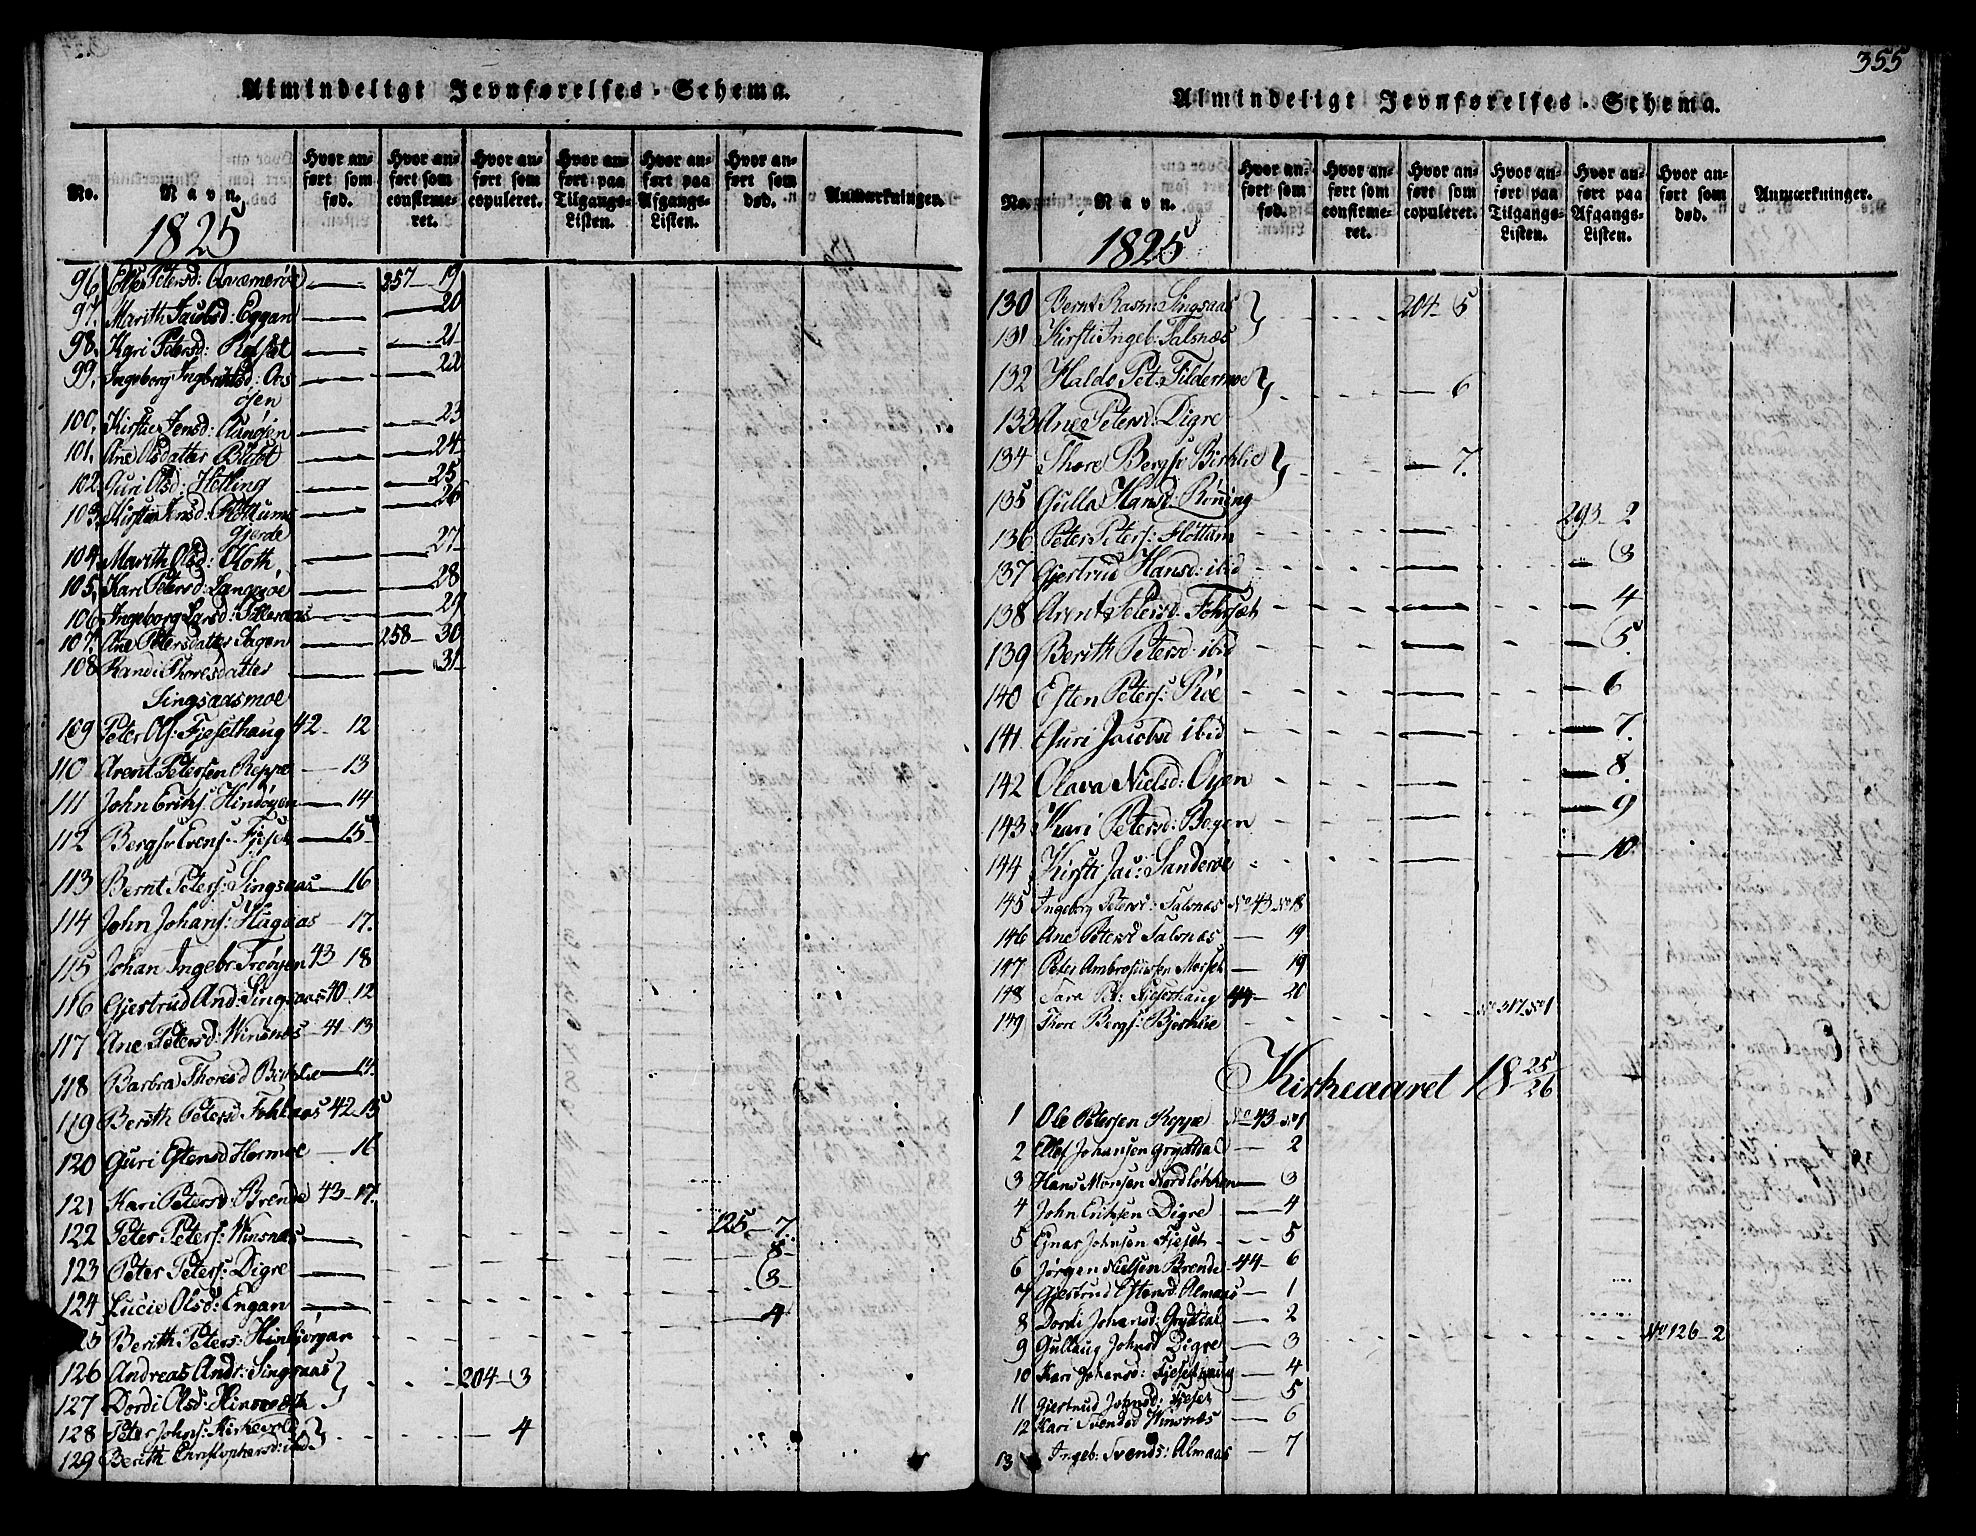 Almindeligt Jevnførelses-Schema.
No. Navn. Hvor anført som fød. Hvor anført som confirmeret. Hvor anført som copuleret. Hvor anført paa Tilgangs-Listen. Hvor anført paa Afgangs-Listen. Hvor anført som død. Anmærkninger.
1825
96 Petersd: 257 19
97. Marith Jacobsd: Eggan 20
98. Kari Petersd: 21
99. Ingeborg 22
øien
100. Kirstie Jensd: 23
101. Ane Olsdatter 24
102 Guri Olsd: Hølling 25
103. Kirstie Jensd: 26
Gjerde
104 Marith Olsd: Koth 27
105. Kari Petersd: Langmoe 28
106 Ingeborg Larsd: 29
107. Ane Petersdatter 258 30
108 Randi Thoresdatter 31
Singsaasmoe
109 Peter Ols: Fjesethaug 42 12
110 Arent Petersen Reppe 13
111 John Eriks: 14
112 Bergsv: Evens: Fjeset 15
113 Bernt Peters: Singsaas 16
114 John Johans: Hagaas 17.
115 Johan Ingebr: Trøøyen 43 18
116 Gjestrud And: Singsaas 40 12
117 Ane Petersd: Winsnes 41 13
118 Barbra Thoresd Birklie 14.
119 Berith Petersd: 42 15
120 Guri Estensd Hermoe 16
121 Kari Petersd: Brende 43 17.
122 Peter Peters: Winsnæs 125 7.
123 Peter Peters: Digre 8
124 Lucie Olsd: Engan 3
125 Berith Peters: 4
126 Andreas Andr: Singsaas } 204 3
127 Dordi Olsd:
128 Peter Johns: Kirkevold } 4
129 Berith Christophersd: ibd
355
Almindeligt Jevnførelses-Schema.
No. Navn. Hvor anført som fød. Hvor anført som confirmeret. Hvor anført som copuleret. Hvor anført paa Tilgangs-Listen. Hvor anført paa Afgangs-Listen. Hvor anført som død. Anmærkninger.
1825
130 Bernt Rasm: Singsaas } 204 5
131 Kirsti Ingeb: Talsnæs
132 Haldo Pet: } 6
133 Ane Petersd: Digre
134 Thore Bergsv Birklie } 7.
135 Gulla Hansd: Røning
136 Peter Peters: Flottum 293 2
137 Gjertrud Hansd: ibid 3
138 Arent Petersd: 4
139 Berith Petersd: ibid 5.
140 Esten Peters: Røe 6
141 Guri Jacobsd ibid 7.
142 Olava Nielsd: Oyen 8.
143 Kari Petersd: Bogen 9
144 Kirsti Jac: Sanderøe 10
145 Ingeborg Petersd: Talsnæs No 43 No 18
146 Ane Petersd Talsnæs 19
147 Peter Ambrosiussen Morset 19
148 Tara Pet: Fjesethaug 44 20
149 Thore Bergs: Bjerklie No 317 No 1
Kirkeaaret 18 25/26
1 Ole Petersen Reppe No 43 No 1
2 Ellef Johansen Gryttdal 2
3 Hans Monsen Nordløkken 3
4 John Eriksen Digre 4
5 Ejnar Johnsen Fjeset 5
6 Jørgen Nielsen Brende 44 6
7 Gjertrud Estensd: Almaas 1
8 Dordi Johansd: Gryttdal 2
9 Gullaug Johnsd Digre 3 No 126 2
10 Kari Johansd: Fjesethaug 4
11 Gjertrud Johnsd: Fjeset 5
12 Kari Svendsd Winsnæs 6
13 Ingeb: Svends: Almaas 7